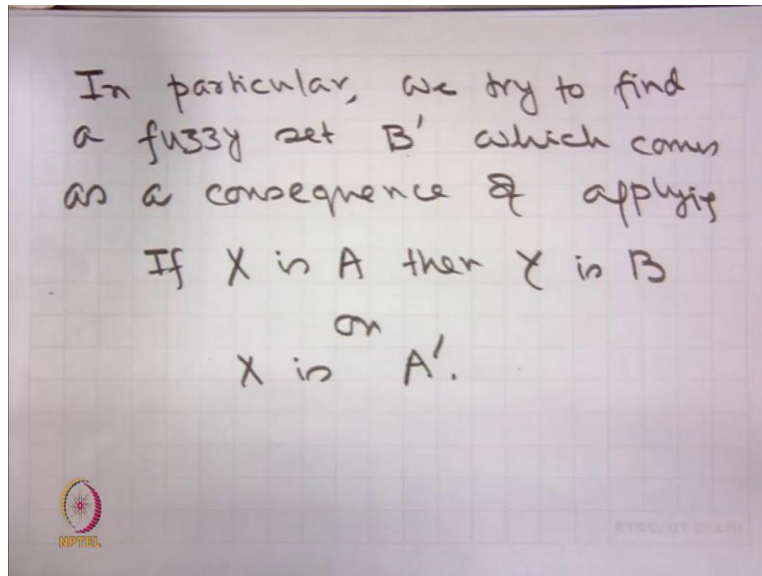 In particular, we try to find
a fuzzy set B' which comes
as a consequence of applying
If X is A then Y is B
on
X is A'.
NPTEL
ETSC, IIT DELHI